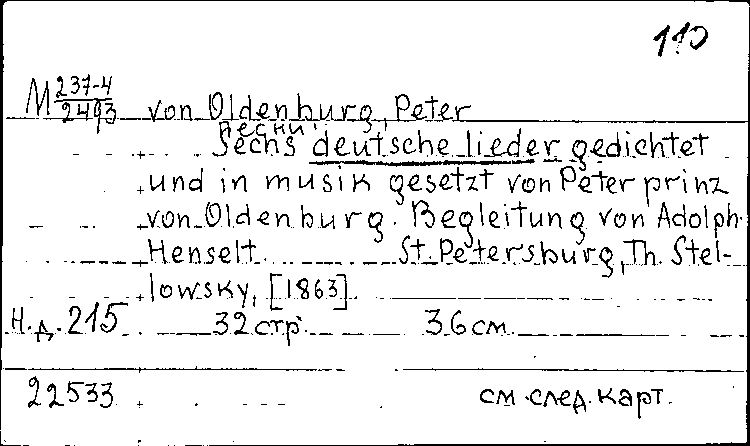 110
М 237-4/2493 von Oldenburg, Peter
Песни:
Sechs deutsche lieder gedichtet
und in musik gesetzt von Peter prinz
von Oldenburg. Begleitung von Adolph
Henselt St. Petersburg, Th. Stel-
lowsky, [1863]
Н.д. 215 32 стр. 36 см.
22533 см. след. карт.